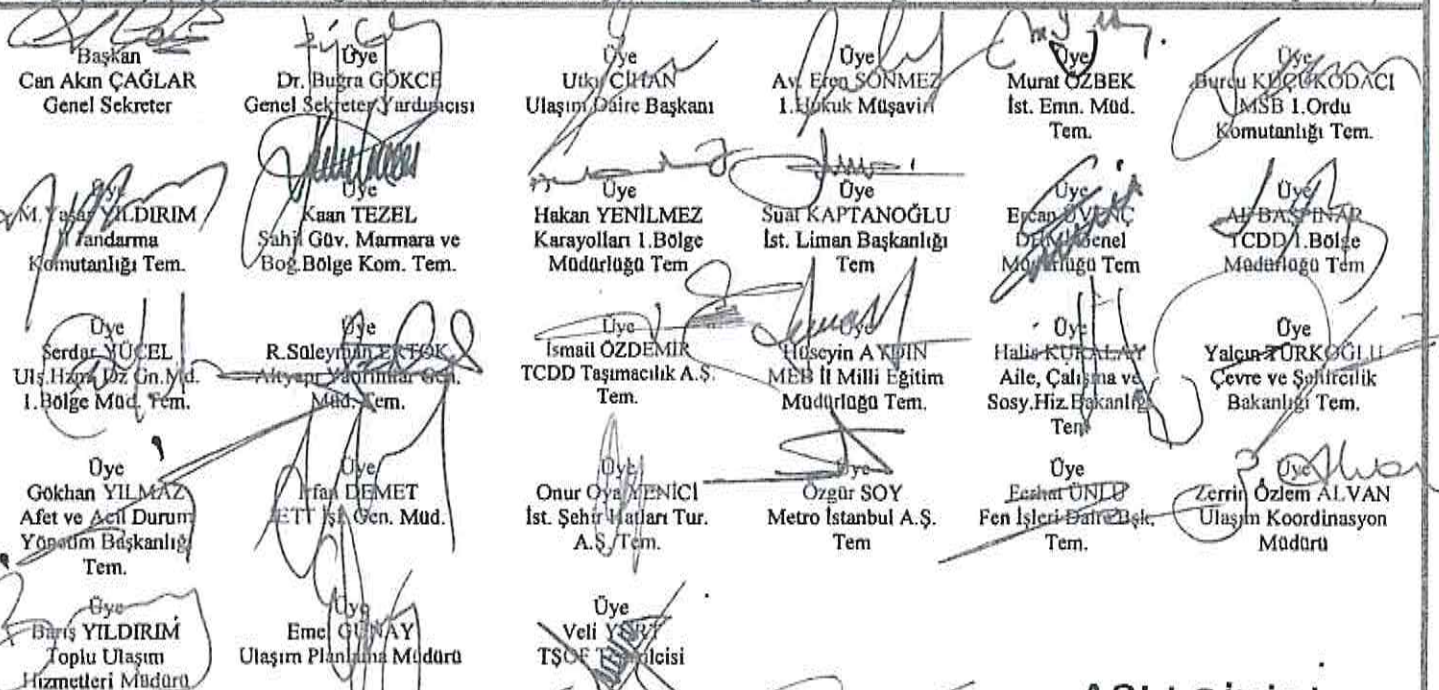 Başkan
Can Akın ÇAĞLAR
Genel Sekreter
Üye
Dr. Buğra GÖKCE
Genel Sekreter Yardımcısı
Üye
Utku CİHAN
Ulaşım Daire Başkanı
Üye
Av. Eren SÖNMEZ
1.Hukuk Müşaviri
Üye
Murat ÖZBEK
İst. Emn. Müd.
Tem.
Üye
Burcu KÜÇÜKODACI
MSB 1.Ordu
Komutanlığı Tem.
Üye
M. Yaşar YILDIRIM
Jandarma
Komutanlığı Tem.
Üye
Kaan TEZEL
Sahil Güv. Marmara ve
Boğ.Bölge Kom. Tem.
Üye
Hakan YENİLMEZ
Karayolları 1.Bölge
Müdürlüğü Tem
Üye
Suat KAPTANOĞLU
İst. Liman Başkanlığı
Tem
Üye
Ercan
Genel
Müdürlüğü Tem
Üye
BAŞPINAR
TCDD 1.Bölge
Müdürlüğü Tem
Üye
Serdar YÜCEL
Ulş.Hzm. Dz Gn.Md.
1.Bölge Müd. Tem.
Üye
R.Süleyman ERTOK
Altyapı Yatırımlar Gen.
Müd. Tem.
Üye
İsmail ÖZDEMİR
TCDD Taşımacılık A.Ş.
Tem.
Üye
Hüseyin AYDIN
MEB İl Milli Eğitim
Müdürlüğü Tem.
Üye
Halis KURALAY
Aile, Çalışma ve
Sosy.Hiz.Bakanlığı
Tem
Üye
Yalçın TÜRKOĞLU
Çevre ve Şehircilik
Bakanlığı Tem.
Üye
Gökhan YILMAZ
Afet ve Acil Durum
Yönetim Başkanlığı
Tem.
Üye
İrfan DEMET
İETT İşl. Gen. Müd.
Üye
Onur Oya YENİCİ
İst. Şehir Hatları Tur.
A.Ş. Tem.
Üye
Özgür SOY
Metro İstanbul A.Ş.
Tem
Üye
ÜNLÜ
Fen İşleri Daire Bşk.
Tem.
Üye
Zerrin Özlem ALVAN
Ulaşım Koordinasyon
Müdürü
Üye
Barış YILDIRIM
Toplu Ulaşım
Hizmetleri Müdürü
Üye
Emel GÜNAY
Ulaşım Planlama Müdürü
Üye
Veli
TŞOF Temsilcisi